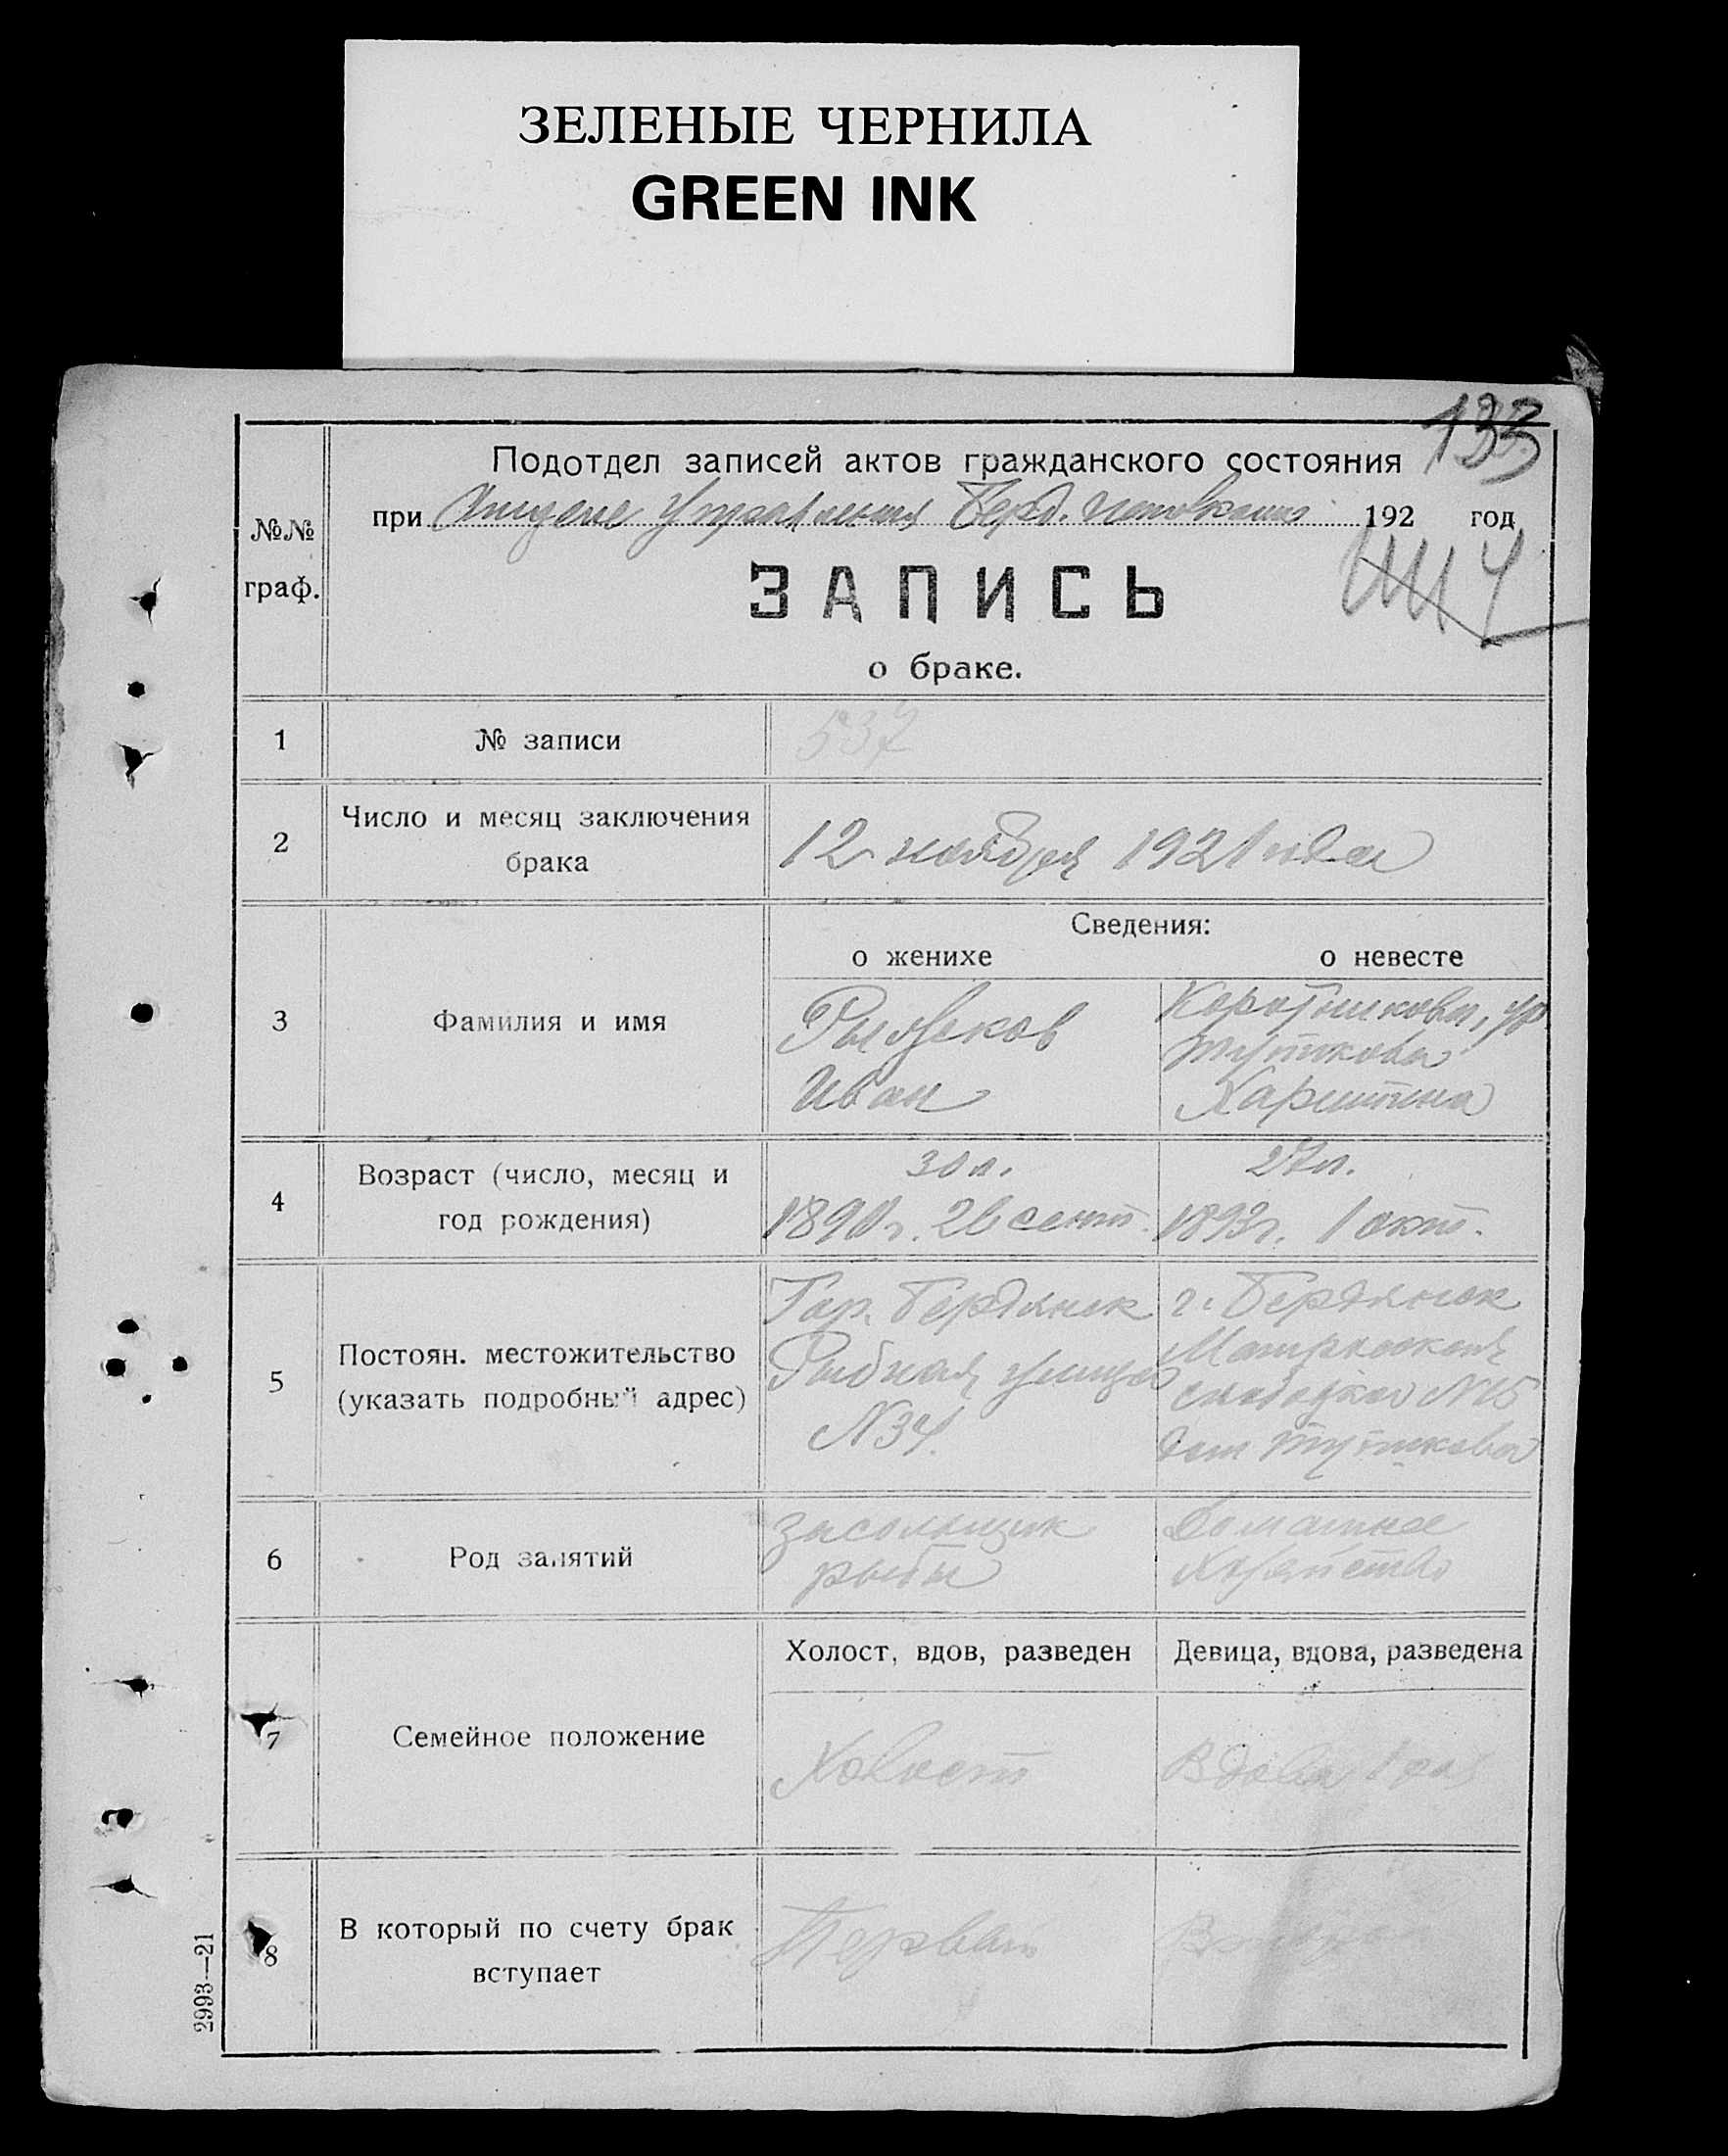 ЗЕЛЕНЫЕ ЧЕРНИЛА
GREEN INK
133
Подотдел записей актов гражданского состояния
при Отделе Управления Берд. 192 год
№№
граф.
ЗАПИСЬ
о браке.
1 № записи 537
2 Число и месяц заключения
брака
12 ноября 1921 года
Сведения:
о женихе о невесте
3 Фамилия и имя
Иван
Харитина
4 Возраст (число, месяц и
год рождения)
30 л. 27 л.
1890 г. 26 сент. 1893 г. 1 окт.
5 Постоян. местожительство
(указать подробный адрес)
Гор. Бердянск
Рыбная улица
N 34.
г. Бердянск
слободка N 15
дом
6 Род занятий
засольщик
рыбы
Домашнее
хозяйство
7 Семейное положение
Холост, вдов, разведен Девица, вдова, разведена
Холост Вдова
8 В который по счету брак
вступает
Первый
2993—21